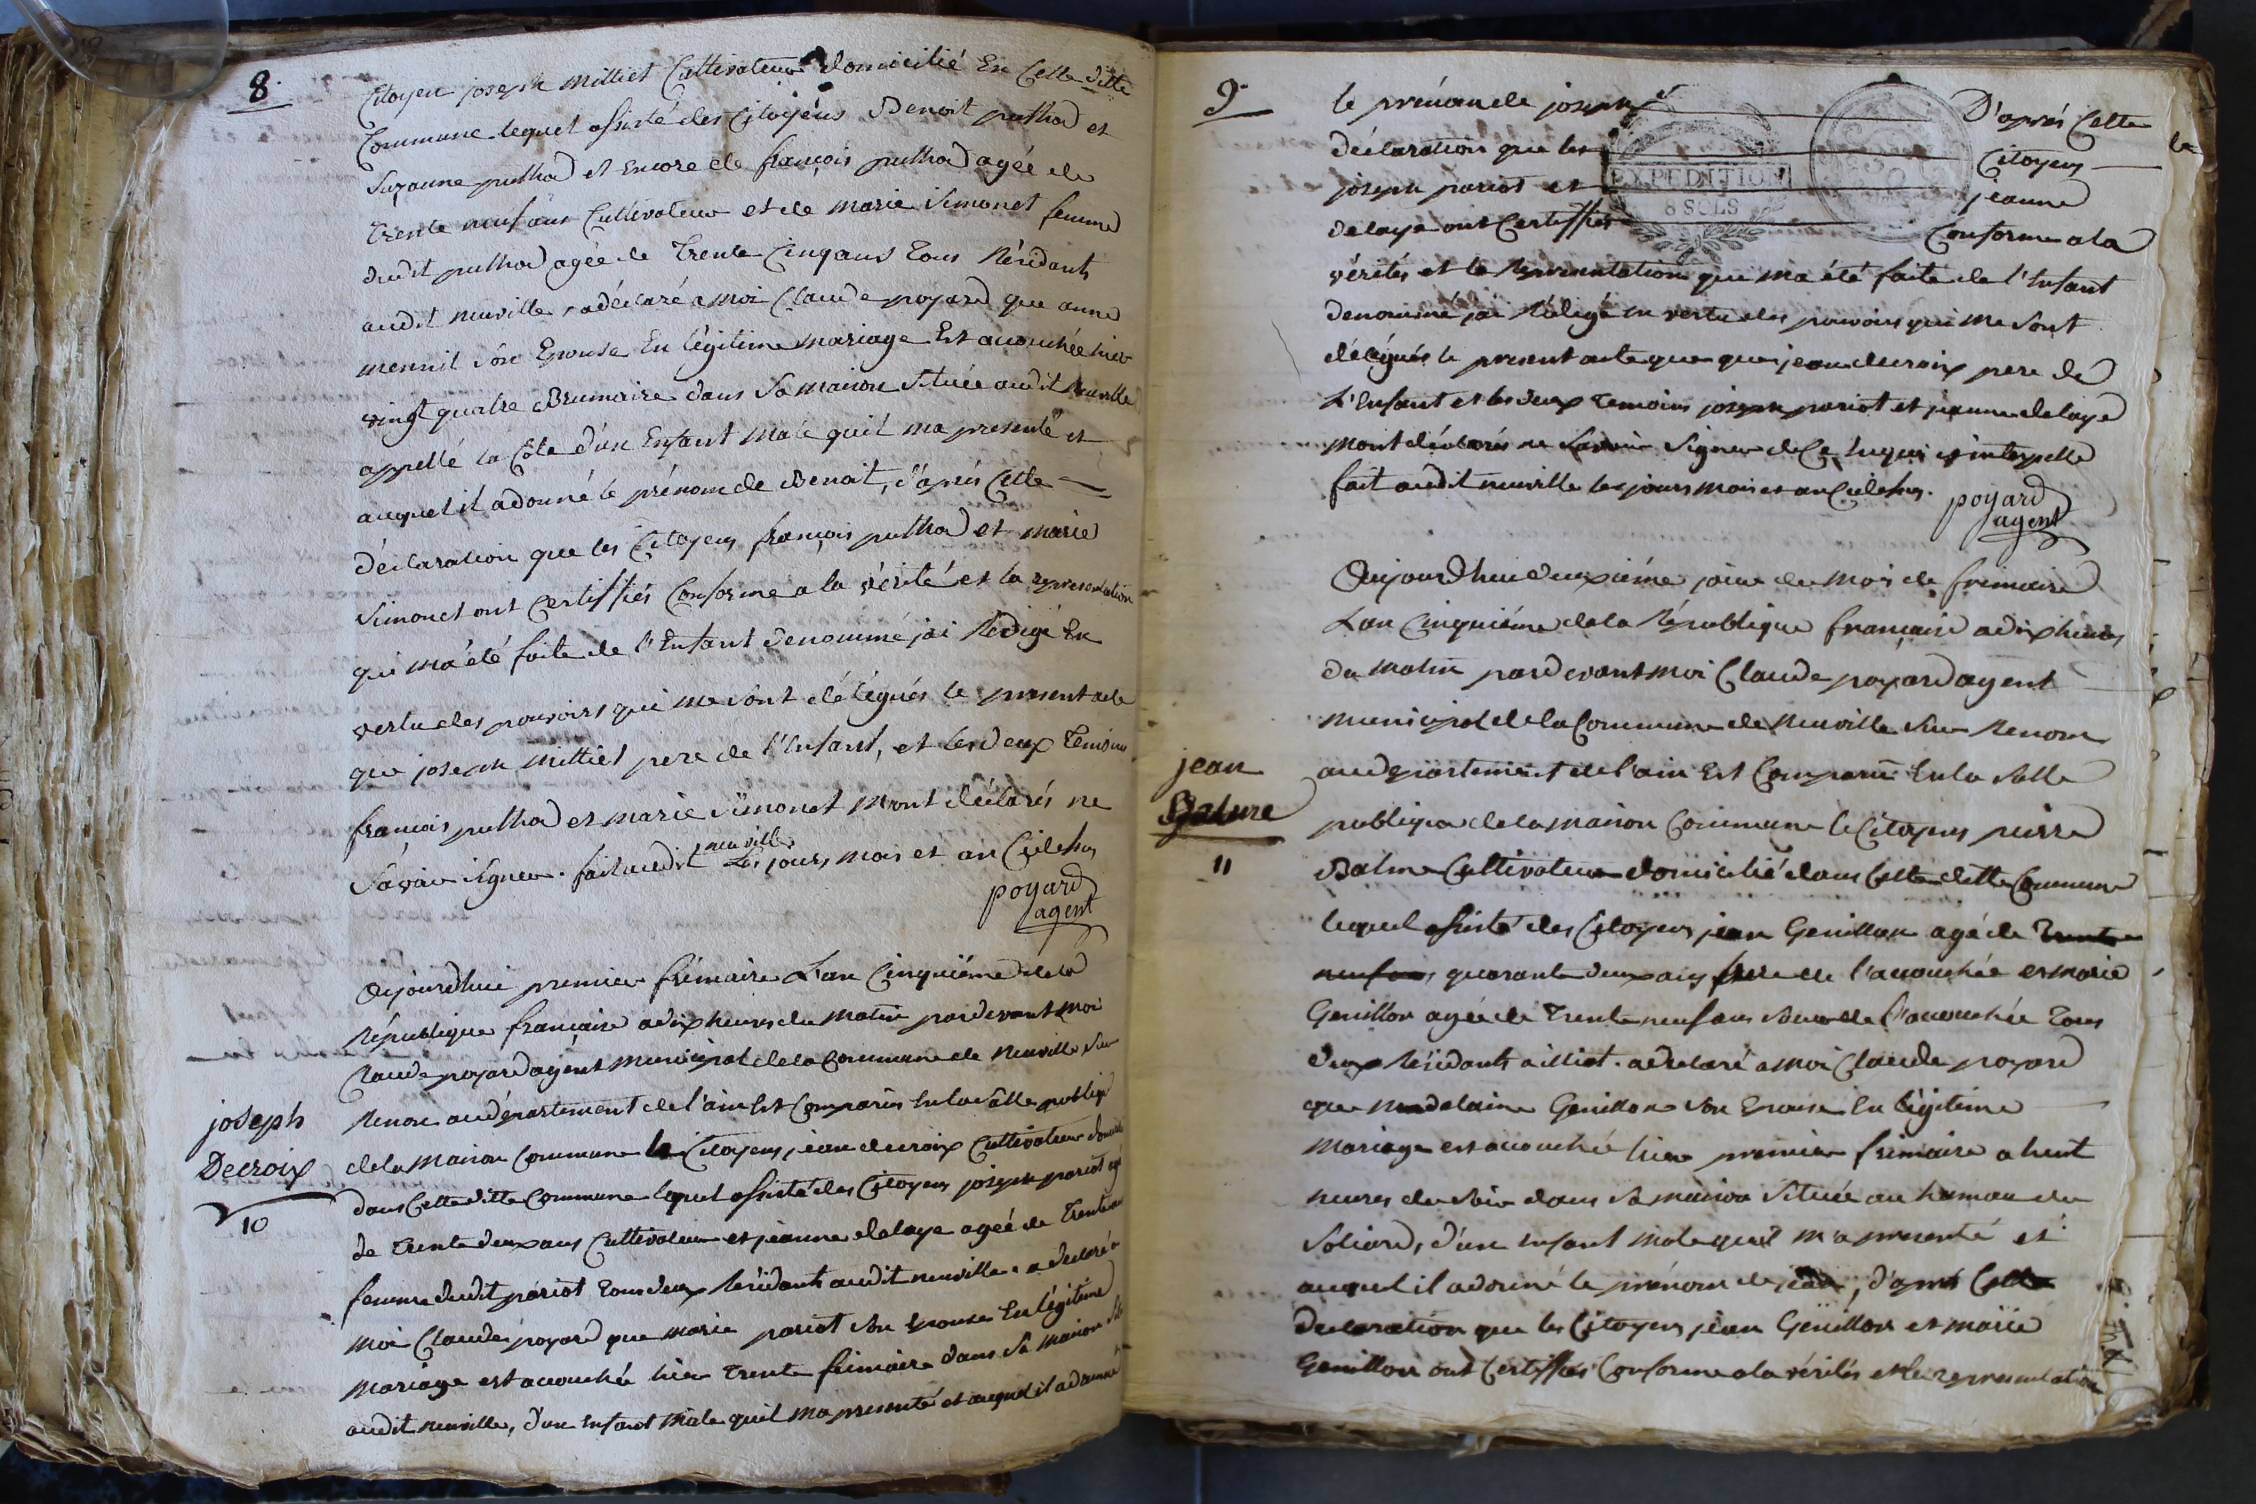 8.
Citoyen joseph milliet Cultivateur domicilié En Cette ditte
Commune lequel assisté des Citoyens Benoit puthod et
Suzanne puthod et encore de françois puthod agée de
trente neuf ans Cultivateur et de marie Simonet femme
dudit puthod agée de trente Cinq ans tous Résidants
audit neuville, a déclaré a moi Claude poyard que anne
mennil son Epouse En légitime mariage Est acouchée hier
vingt quatre Brumaire dans Sa maison située audit neuville
appellé la Côte d'un Enfant male qu'il ma presenté et
auquel il a donné le prénom de Benoit, d'aprés Cette
déclaration que les Citoyens françois puthod et marie
Simonet ont Certiffiés Conforme a la vérité et la representation
qui ma été faite de l'Enfant denommé jai Redigé En
vertu des pouvoirs qui me sont délégués le present acte
que joseph milliet pere de l'Enfant, et les deux temoins
françois puthod et marie simonet mont déclarés ne
Savoir signer. fait audit neuville Les jours, mois et an Cidessus
poyard
agent
joseph
Decroix
10
Aujourdhui premier frimaire L'an Cinquiéme de la
République française a dix heures du matin pardevant moi
Claude poyard agent municipal de la Commune de Neuville sur
Renom au département de l'ain Est Comparus En la Salle publiq
de la maison Commune le Citoyens jean decroix Cultivateur
dans Cette ditte Commune lequel assisté des Citoyens joseph pariot agé
de trente deux ans Cultivateur et jeanne delaye agée de trente
femme dudit pariot tous deux Résidants audit neuville. a declaré a
moi Claude poyard que marie pariot son Epouse En légitime
mariage est acouchée hier trente frimaire dans Sa maison
audit neuville, d'un Enfant male quil ma presenté et auquel il a donné
9.
le prénom de joseph D'aprés Cette
déclaration que les Citoyens
joseph pariot et jeanne
delaye ont Certiffiés Conforme a la
EXPEDITION
8 SOLS
vérités et la Representation que ma été faite de l'Enfant
denommé jai Rédigé en vertu des pouvoirs qui me sont
délégués le present acte que que jean decroix pere de
L'Enfant et les deux temoins joseph pariot et jeanne delaye
mont déclarés ne Savoir Signer de Ce Enquis et interpellé
fait audit neuville les jours mois et an Cidessus.
poyard
agent
jean
Balme
11
Aujourdhui deuxiéme jour du mois de frimaire
L'an Cinquiéme de la République française a dix heures
du matin pardevant moi Claude poyard agent
municipal de la Commune de Neuville Sur Renom
au département de l'ain Est Comparu En la Salle
publique de la maison Commune le Citoyens pierre
Balme Cultivateur domicilié dans Cette ditte Commune
lequel assisté des Citoyens jean Genillon agé de trente
neuf ans quarante deux ans frere de l'acouchée et marie
Genillon agée de trente neuf ans Soeur de l'acouchée tous
deux Résidants a illiat. a declaré a moi Claude poyard
que madelaine Genillon son Epouse En légitime
mariage est acouchée hier premier frimaire a huit
heures du Soir dans Sa maison Située au hameau du
Soliard, d'un Enfant male quil m'a presenté et
auquel il a donné le prénom de jean, d'aprés Cette
declaration que les Citoyens jean Genillon et marie
Genillon ont Certiffiés Conforme a la vérités et la representation